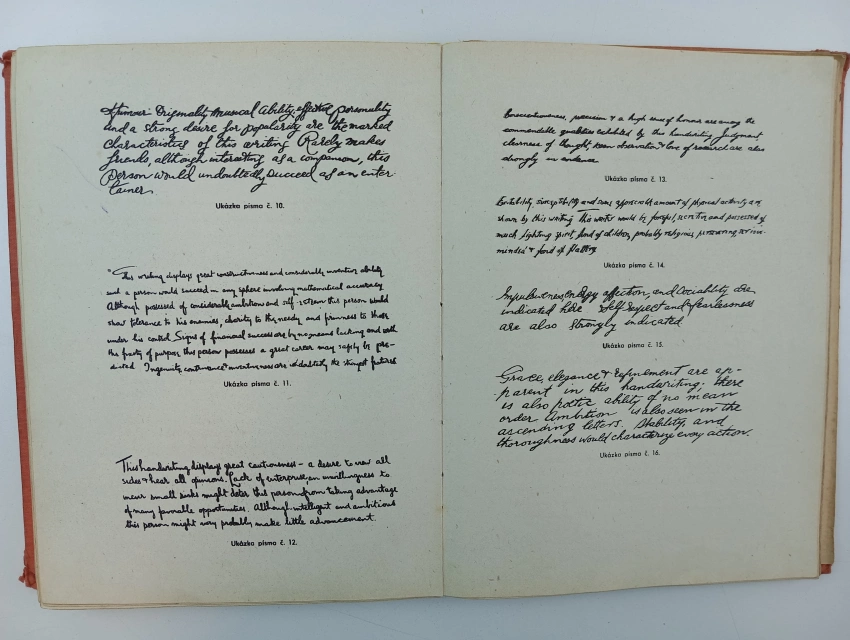 Humour Originality musical Ability, effective personality
and a strong desire for popularity are the marked
characteristics of this writing Rarely makes
friends, although interesting as a companion, this
Person would undoubtedly succeed as an enter
tainer.
Ukázka písma č. 10.
"This writing displays great constructiveness and considerable inventive ability
and a person would succeed in any sphere involving mathematical accuracy
Although possessed of considerable ambition and self-esteem this person would
show tolerance to his enemies, charity to the needy and firmness to those
under his control. Signs of financial success are by no means lacking and with
the fixity of purpose this person possesses a great career may safely be pre-
dicted Ingenuity, contrivance & inventiveness are undoubtedly the strongest features
Ukázka písma č. 11.
This handwriting displays great cautiousness – a desire to view all
sides & hear all opinions. Lack of enterprise, an unwillingness to
incur small risks might deter this person from taking advantage
of many favorable opportunities. Although intelligent and ambitious
this person might very probably make little advancement.
Ukázka písma č. 12.
Conscientiousness, precision & a high sense of honour are among the
commendable qualities exhibited by this handwriting Judgment
clearness of thought, keen observation & love of research are also
strongly in evidence
Ukázka písma č. 13.
Excitability, susceptibility and some appreciable amount of physical activity are
shown by this writing This writer would be forceful, secretive, and possessed of
much fighting spirit, fond of children, probably religious, persevering,
minded & fond of flattery
Ukázka písma č. 14.
Impulsiveness, energy affection, and Sociability are
indicated here Self Respect and fearlessness
are also strongly indicated
Ukázka písma č. 15.
Grace, elegance & refinement are ap-
parent in this handwriting; there
is also poetic ability of no mean
order Ambition is also seen in the
ascending letters. Stability, and
thoroughness would characterize every action.
Ukázka písma č. 16.